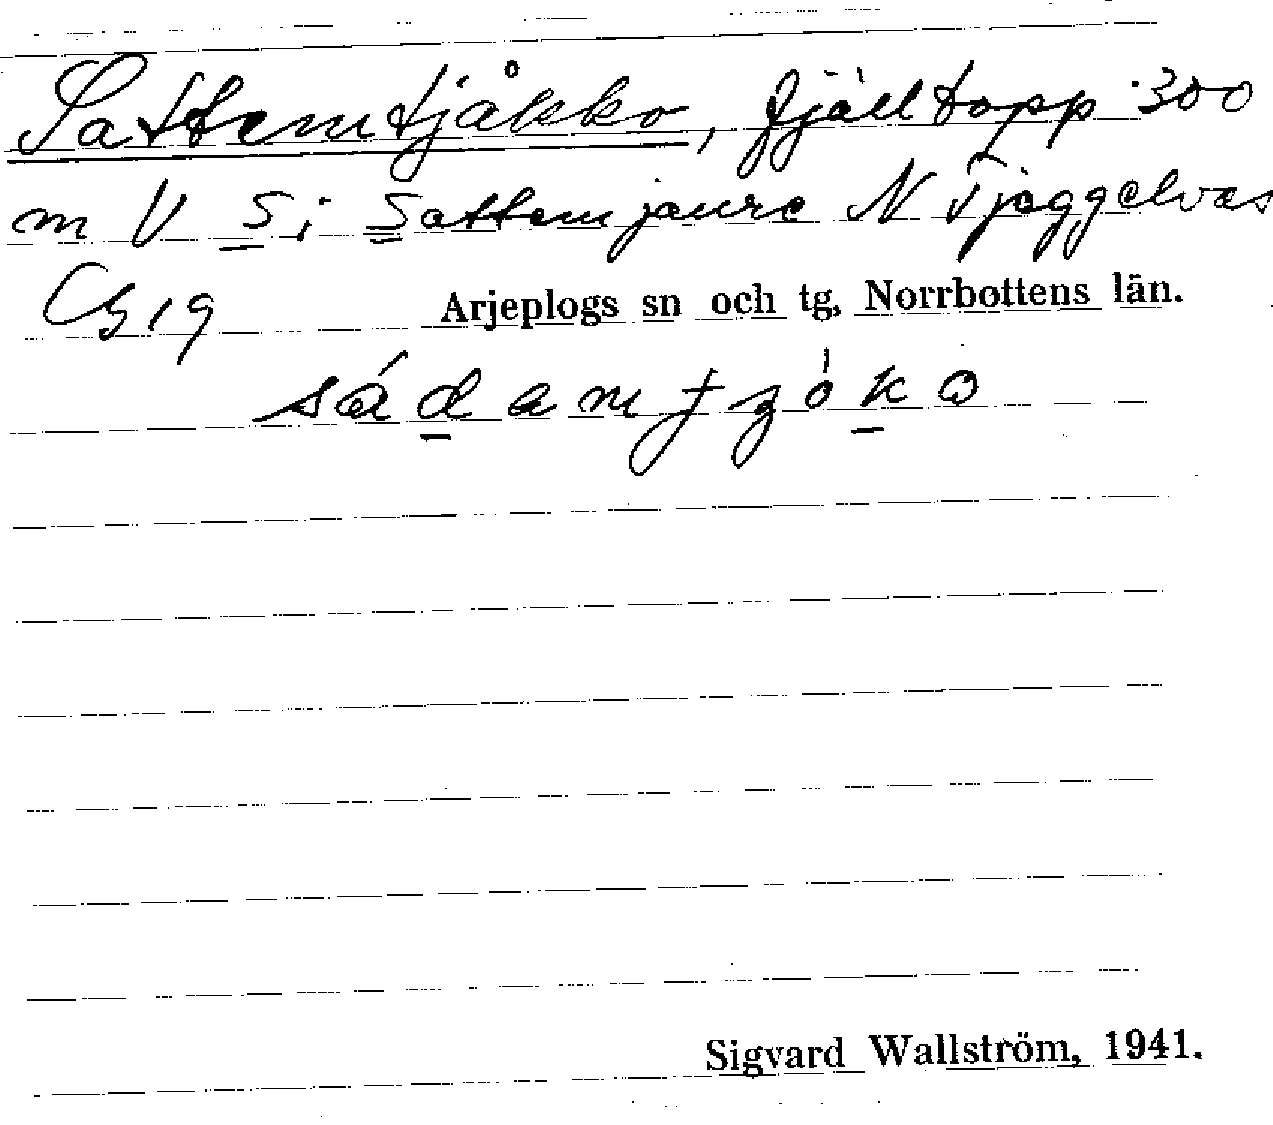 Sattemtjåkko, fjälltopp 300
m V S i Sattemjaure N Tjeggelvas
Cb 19 Arjeplogs sn och tg, Norrbottens län.
sádamtʒóko
Sigvard Wallström, 1941.